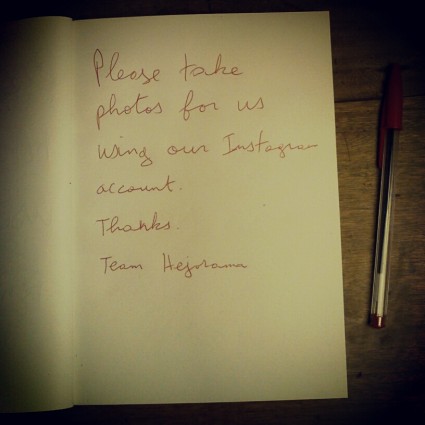 Please take
photos for us
using our Instagram
account.
Thanks.
Team Hejorama